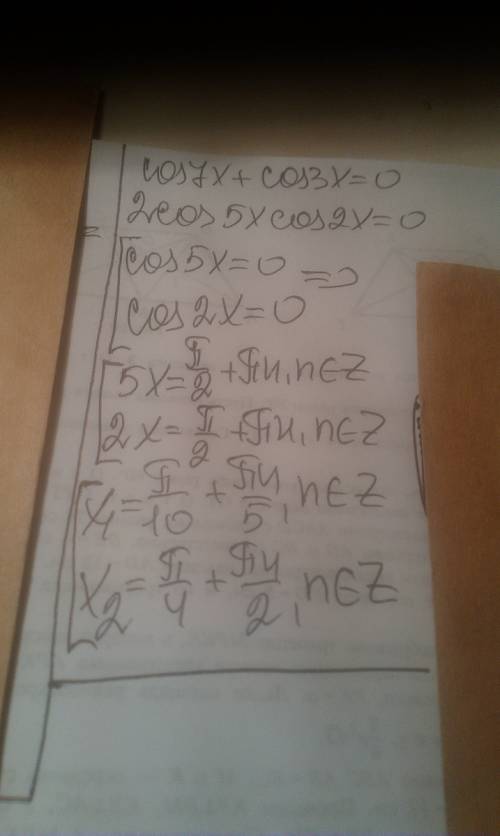 cos7x + cos3x = 0
2cos 5x cos2x = 0
=
cos 5x = 0 =>
cos 2x = 0
5x = π/2 + πn, n∈Z
2x = π/2 + πn, n∈Z
x₁ = π/10 + πn/5, n∈Z
x₂ = π/4 + πn/2, n∈Z